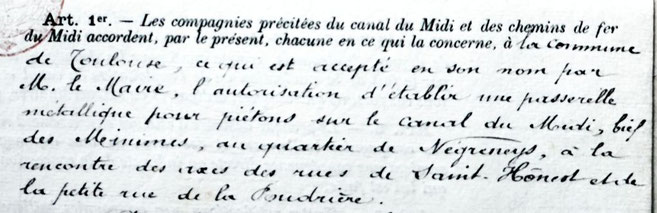 Art. 1er. — Les compagnies précitées du canal du Midi et des chemins de fer
du Midi accordent, par le présent, chacune en ce qui la concerne, à la commune
de Toulouse, ce qui est accepté en son nom par
M. le Maire, l'autorisation d'établir une passerelle
métallique pour piétons sur le canal du Midi, bief
des Meinimes, au quartier de Négreneys, à la
rencontre des axes des rues de Saint-Hônest et de
la petite rue de la Poudrière.